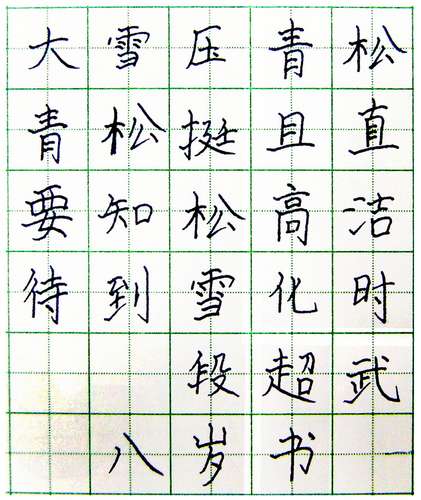 大雪压青松
青松挺且直
要知松高洁
待到雪化时
段超武
八岁书